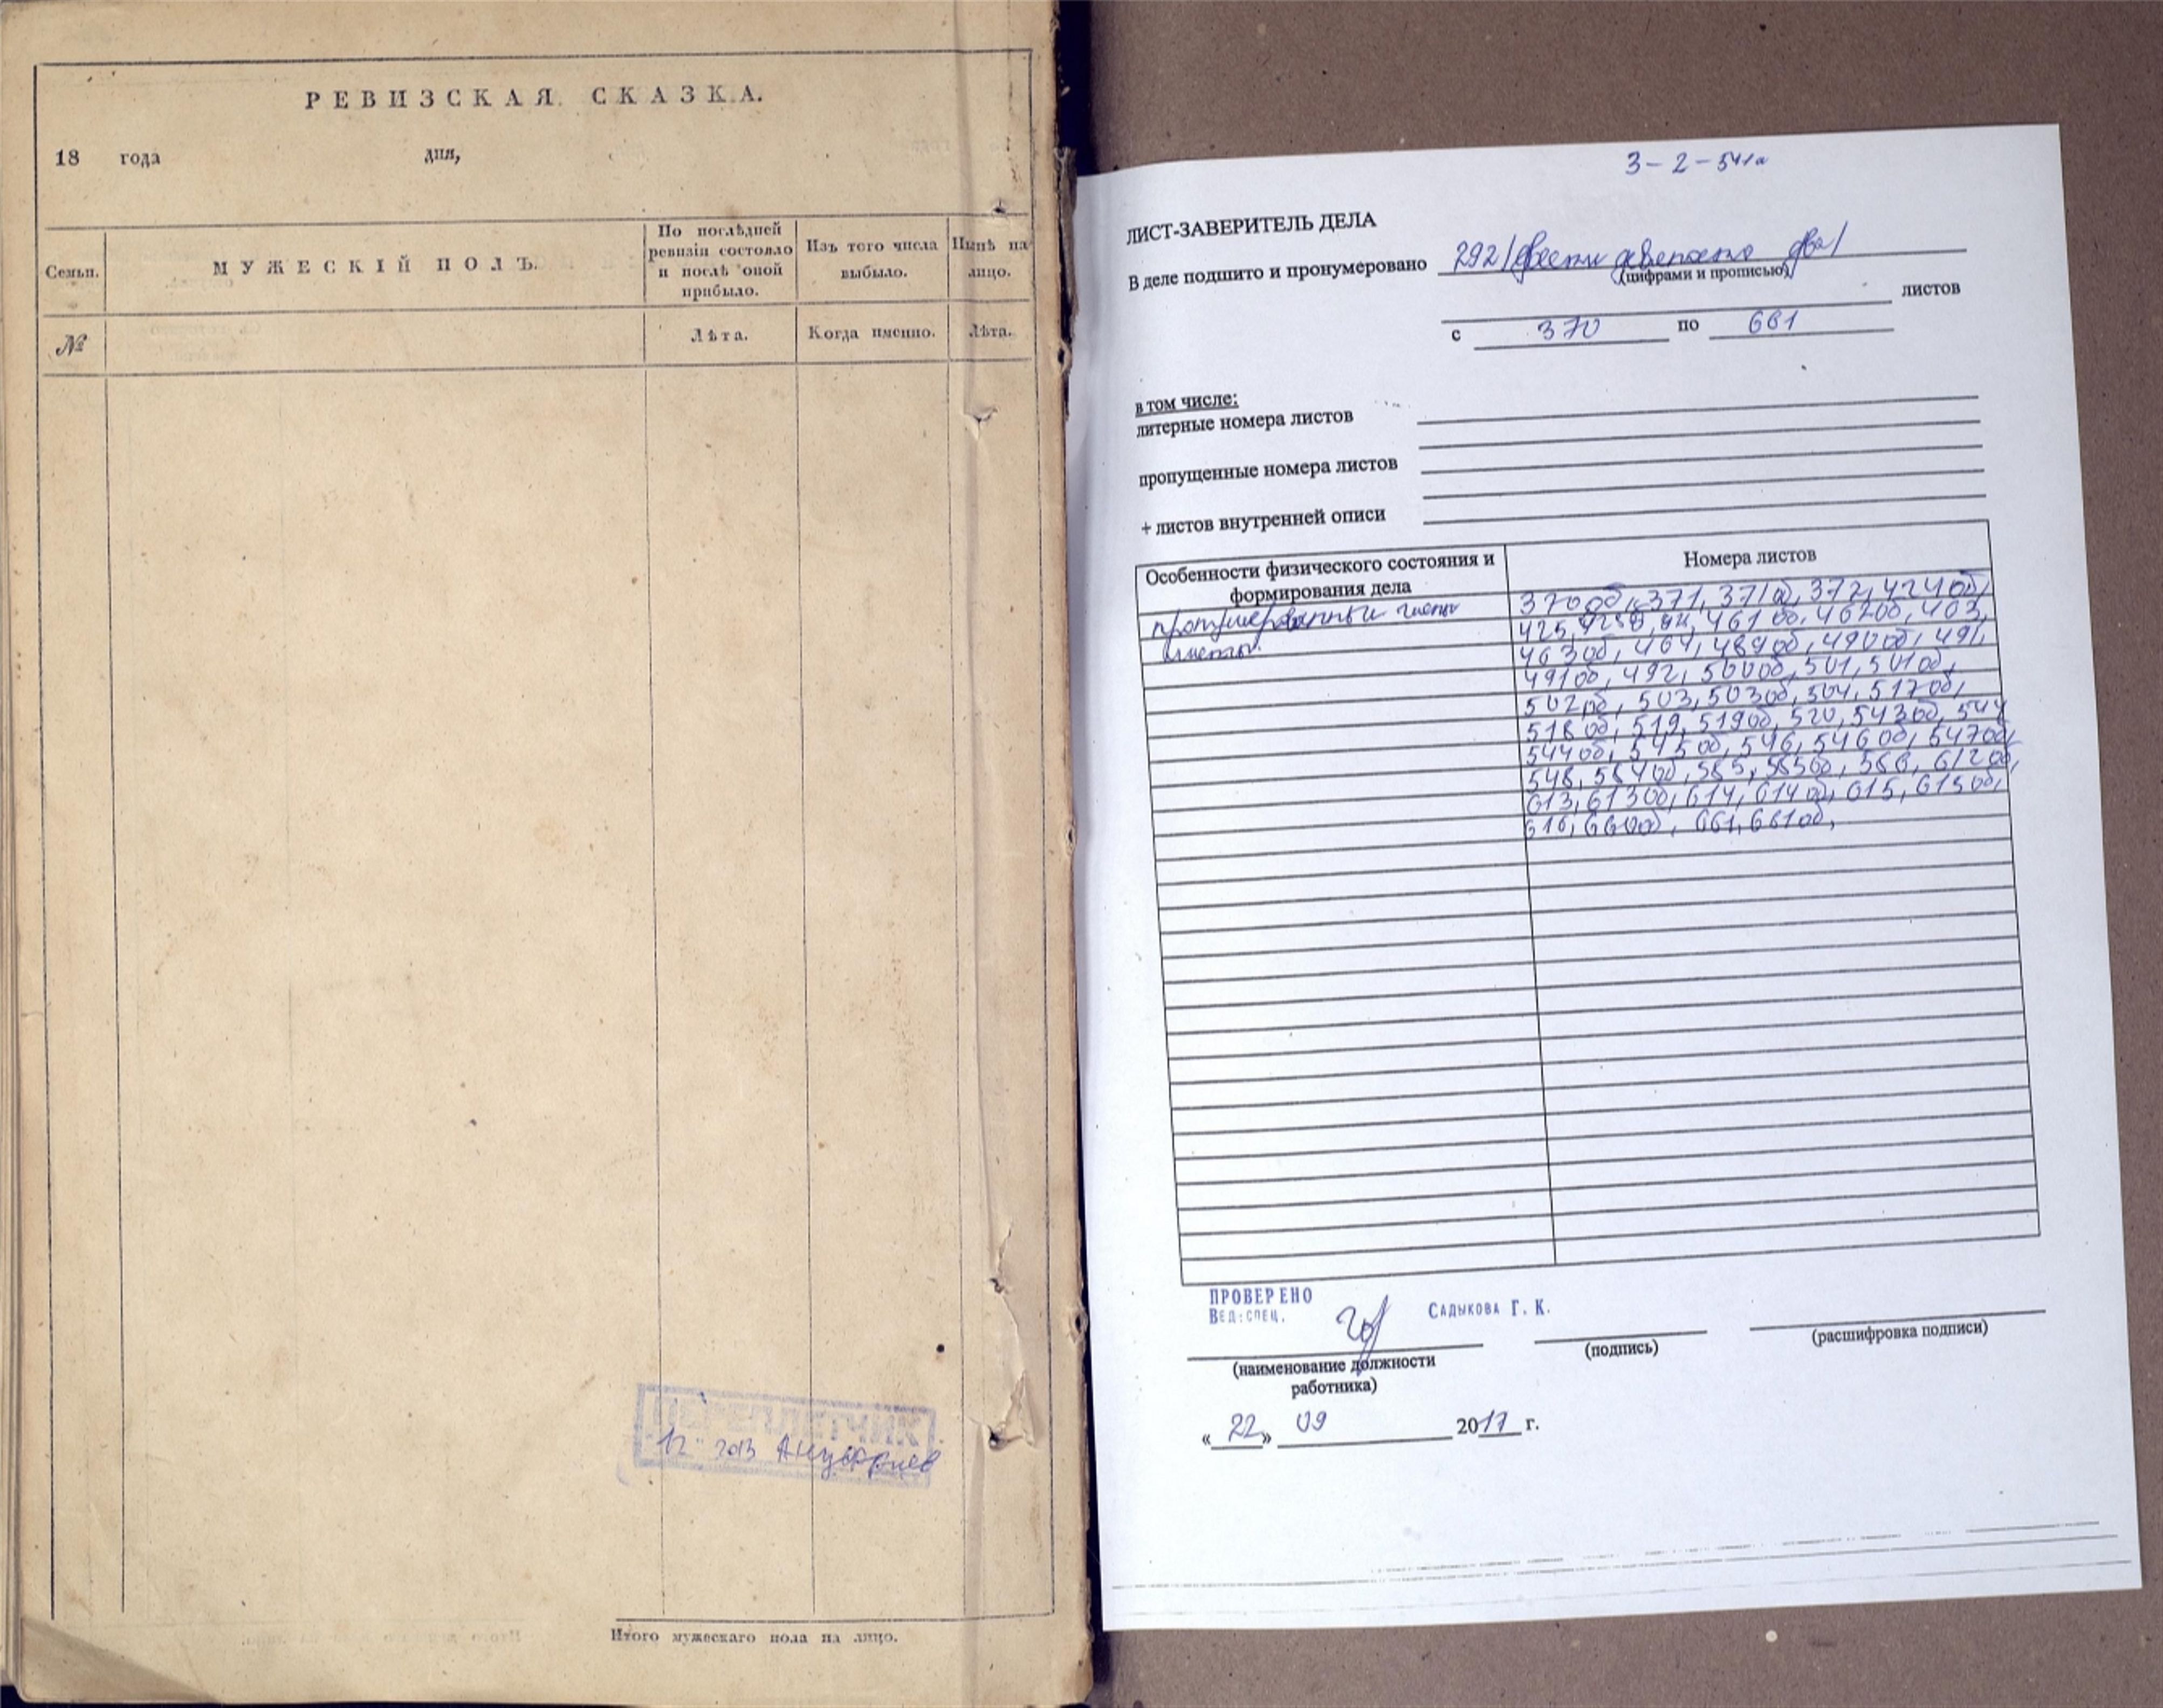 РЕВИЗСКАЯ СКАЗКА.
18 года дня,
Семьи.
МУЖЕСКІЙ ПОЛЪ.
По послѣдней
ревизіи состояло
и послѣ оной
прибыло.
Изъ того числа
выбыло.
Нынѣ на
лицо.
№
Лѣта.
Когда именно.
Лѣта.
ПЕРЕПЛЕТЧИК
12 2013
Итого мужескаго пола на лицо.
3-2-541а
ЛИСТ-ЗАВЕРИТЕЛЬ ДЕЛА
В деле подшито и пронумеровано 292/двести девяносто два/
(цифрами и прописью)
листов
с 370 по 661
в том числе:
литерные номера листов
пропущенные номера листов
+ листов внутренней описи
Особенности физического состояния и
формирования дела
Номера листов
листы
370об, 371, 371об, 372, 424об,
425, 425об, 461об, 462об, 463,
463об, 464, 489об, 490об, 491,
491об, 492, 500об, 501, 501об,
502об, 503, 503об, 504, 517об,
518об, 519, 519об, 520, 543об, 544
544об, 545об, 546, 546об, 547об,
548, 584об, 585, 585об, 586, 612об,
613, 613об, 614, 614об, 615, 615об,
616, 660об, 661, 661об,
ПРОВЕРЕНО
ВЕД. СПЕЦ.
САДЫКОВА Г. К.
(наименование должности
работника)
(подпись)
(расшифровка подписи)
«22» 09 2017 г.